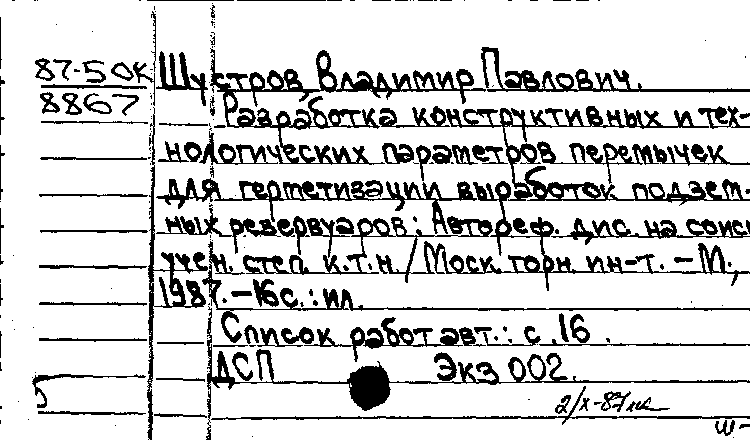 87-5 ОК Шустров, Владимир Павлович.
8867 Разработка конструктивных и тех-
нологических параметров перемычек
для герметизации выработок подзем-
ных резервуаров: Автореф. дис. на соиск
учен. степ. к.т.н. / Моск. горн. ин-т. – М.,
1987. – 16 с. : ил.
Список работ авт.: с. 16.
ДСП Экз 002.
2/X-87
Ш-